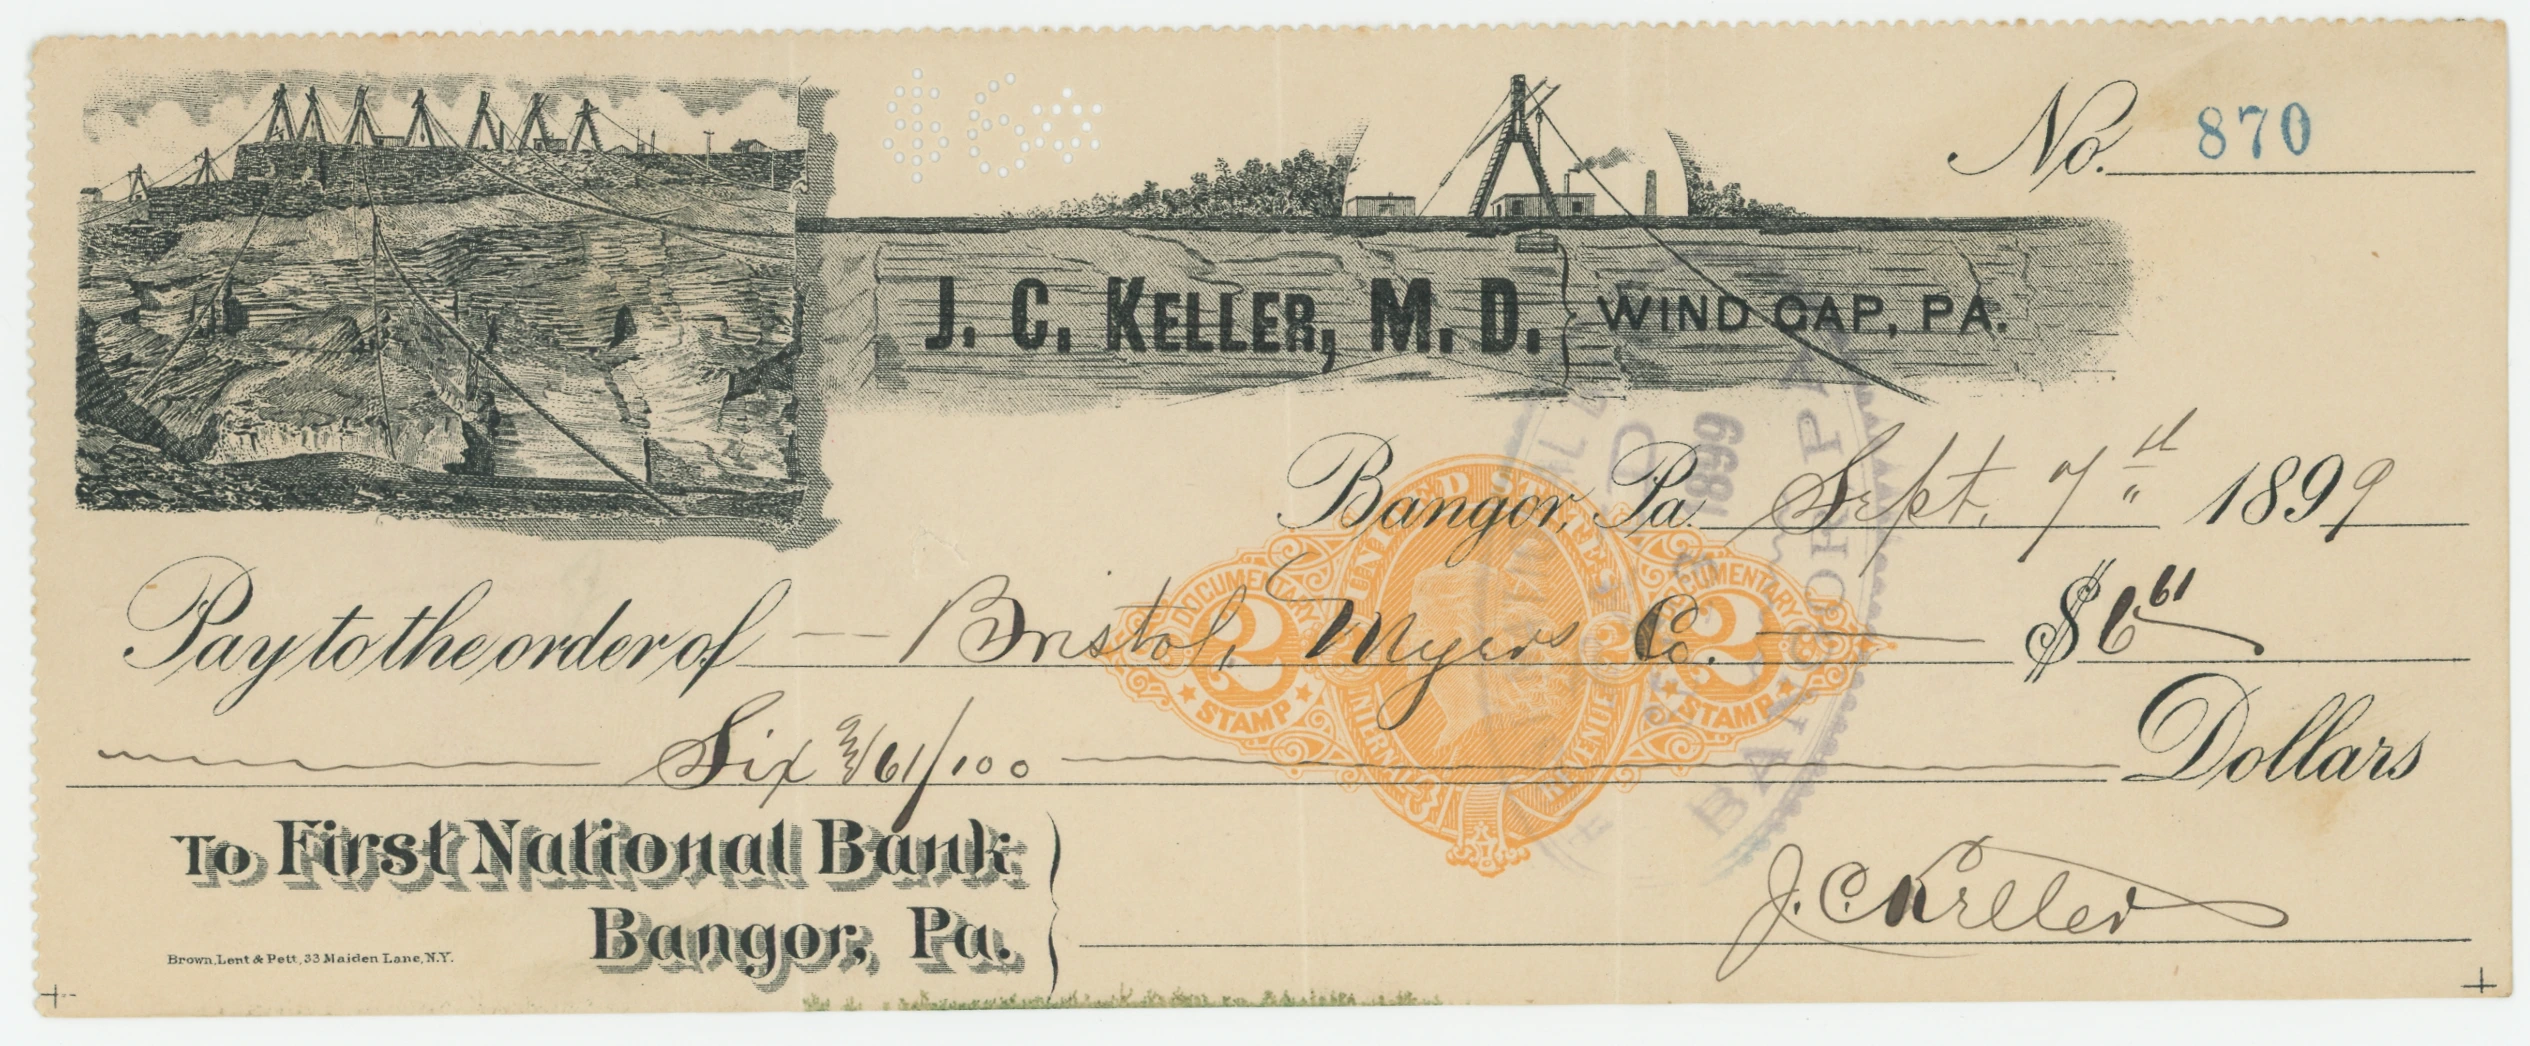 $6☆
No. 870
J. C. KELLER, M. D. } WIND GAP, PA.
Bangor, Pa. Sept. 7th 1899
Pay to the order of Bristol, Myers Co. $6 61
Six & 61/100 Dollars
UNITED STATES
DOCUMENTARY DOCUMENTARY
2 2
STAMP STAMP
INTERNAL REVENUE
1899
BANGOR PA
To First National Bank
Bangor, Pa.
J. C. Keller
Brown, Lent & Pett, 33 Maiden Lane, N.Y.